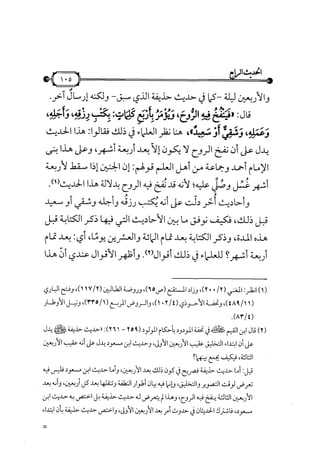 الحديث الرابع
١٠٥
والأربعين ليلة -كما في حديث حذيفة الذي سبق- ولكنه إرسال آخر.
قال: «فَيَنْفُخُ فِيهِ الرُّوحَ، وَيُؤْمَرُ بِأَرْبَعِ كَلِمَاتٍ: بِكَتْبِ رِزْقِهِ، وَأَجَلِهِ،
وَعَمَلِهِ، وَشَقِيٌّ أَوْ سَعِيدٌ»، هنا نظر العلماء في ذلك فقالوا: هذا الحديث
يدل على أن نفخ الروح لا يكون إلا بعد أربعة أشهر، وعلى هذا بنى
الإمام أحمد وجماعة من أهل العلم قولهم: إن الجنين إذا سقط لأربعة
أشهر غُسل وصُلي عليه؛ لأنه قد نُفخ فيه الروح بدلالة هذا الحديث(١).
وأحاديث أُخر دلت على أنه يُكتب رزقه وأجله وشقي أو سعيد
قبل ذلك، فكيف نوفق ما بين الأحاديث التي فيها ذكر الكتابة قبل
هذه المدة، وذكر الكتابة بعد تمام المائة والعشرين يومًا، أي: بعد تمام
أربعة أشهر؟ للعلماء في ذلك أقوال(٢). وأظهر الأقوال عندي أن هذا
(١) انظر: المغني (٢٠٠/٢)، وزاد المستقنع (ص٦٥)، وروضة الطالبين (١١٧/٢)، وفتح الباري
(٤٨٩/١١)، وتحفة الأحوذي (١٠٢/٤)، والروض المربع (٣٣٥/١)، ونيل الأوطار
(٨٣/٤).
(٢) قال ابن القيم في تحفة المودود بأحكام المولود (٢٥٩ - ٢٦١): «حديث حذيفة يدل
على أن ابتداء التخليق عقيب الأربعين الأولى، وحديث ابن مسعود يدل على أنه عقيب الأربعين
الثالثة، فكيف يجمع بينهما؟
قيل: أما حديث حذيفة فصريح في كون ذلك بعد الأربعين، وأما حديث ابن مسعود فليس فيه
تعرض لوقت التصوير والتخليق، وإنما فيه بيان أطوار النطفة وتنقلها بعد كل أربعين، وأنه بعد
الأربعين الثالثة ينفخ فيه الروح، وهذا لم يتعرض له حديث حذيفة بل اختص به حديث ابن
مسعود، فاشترك الحديثان في حدوث أمر بعد الأربعين الأولى، واختص حديث حذيفة بأن ابتداء